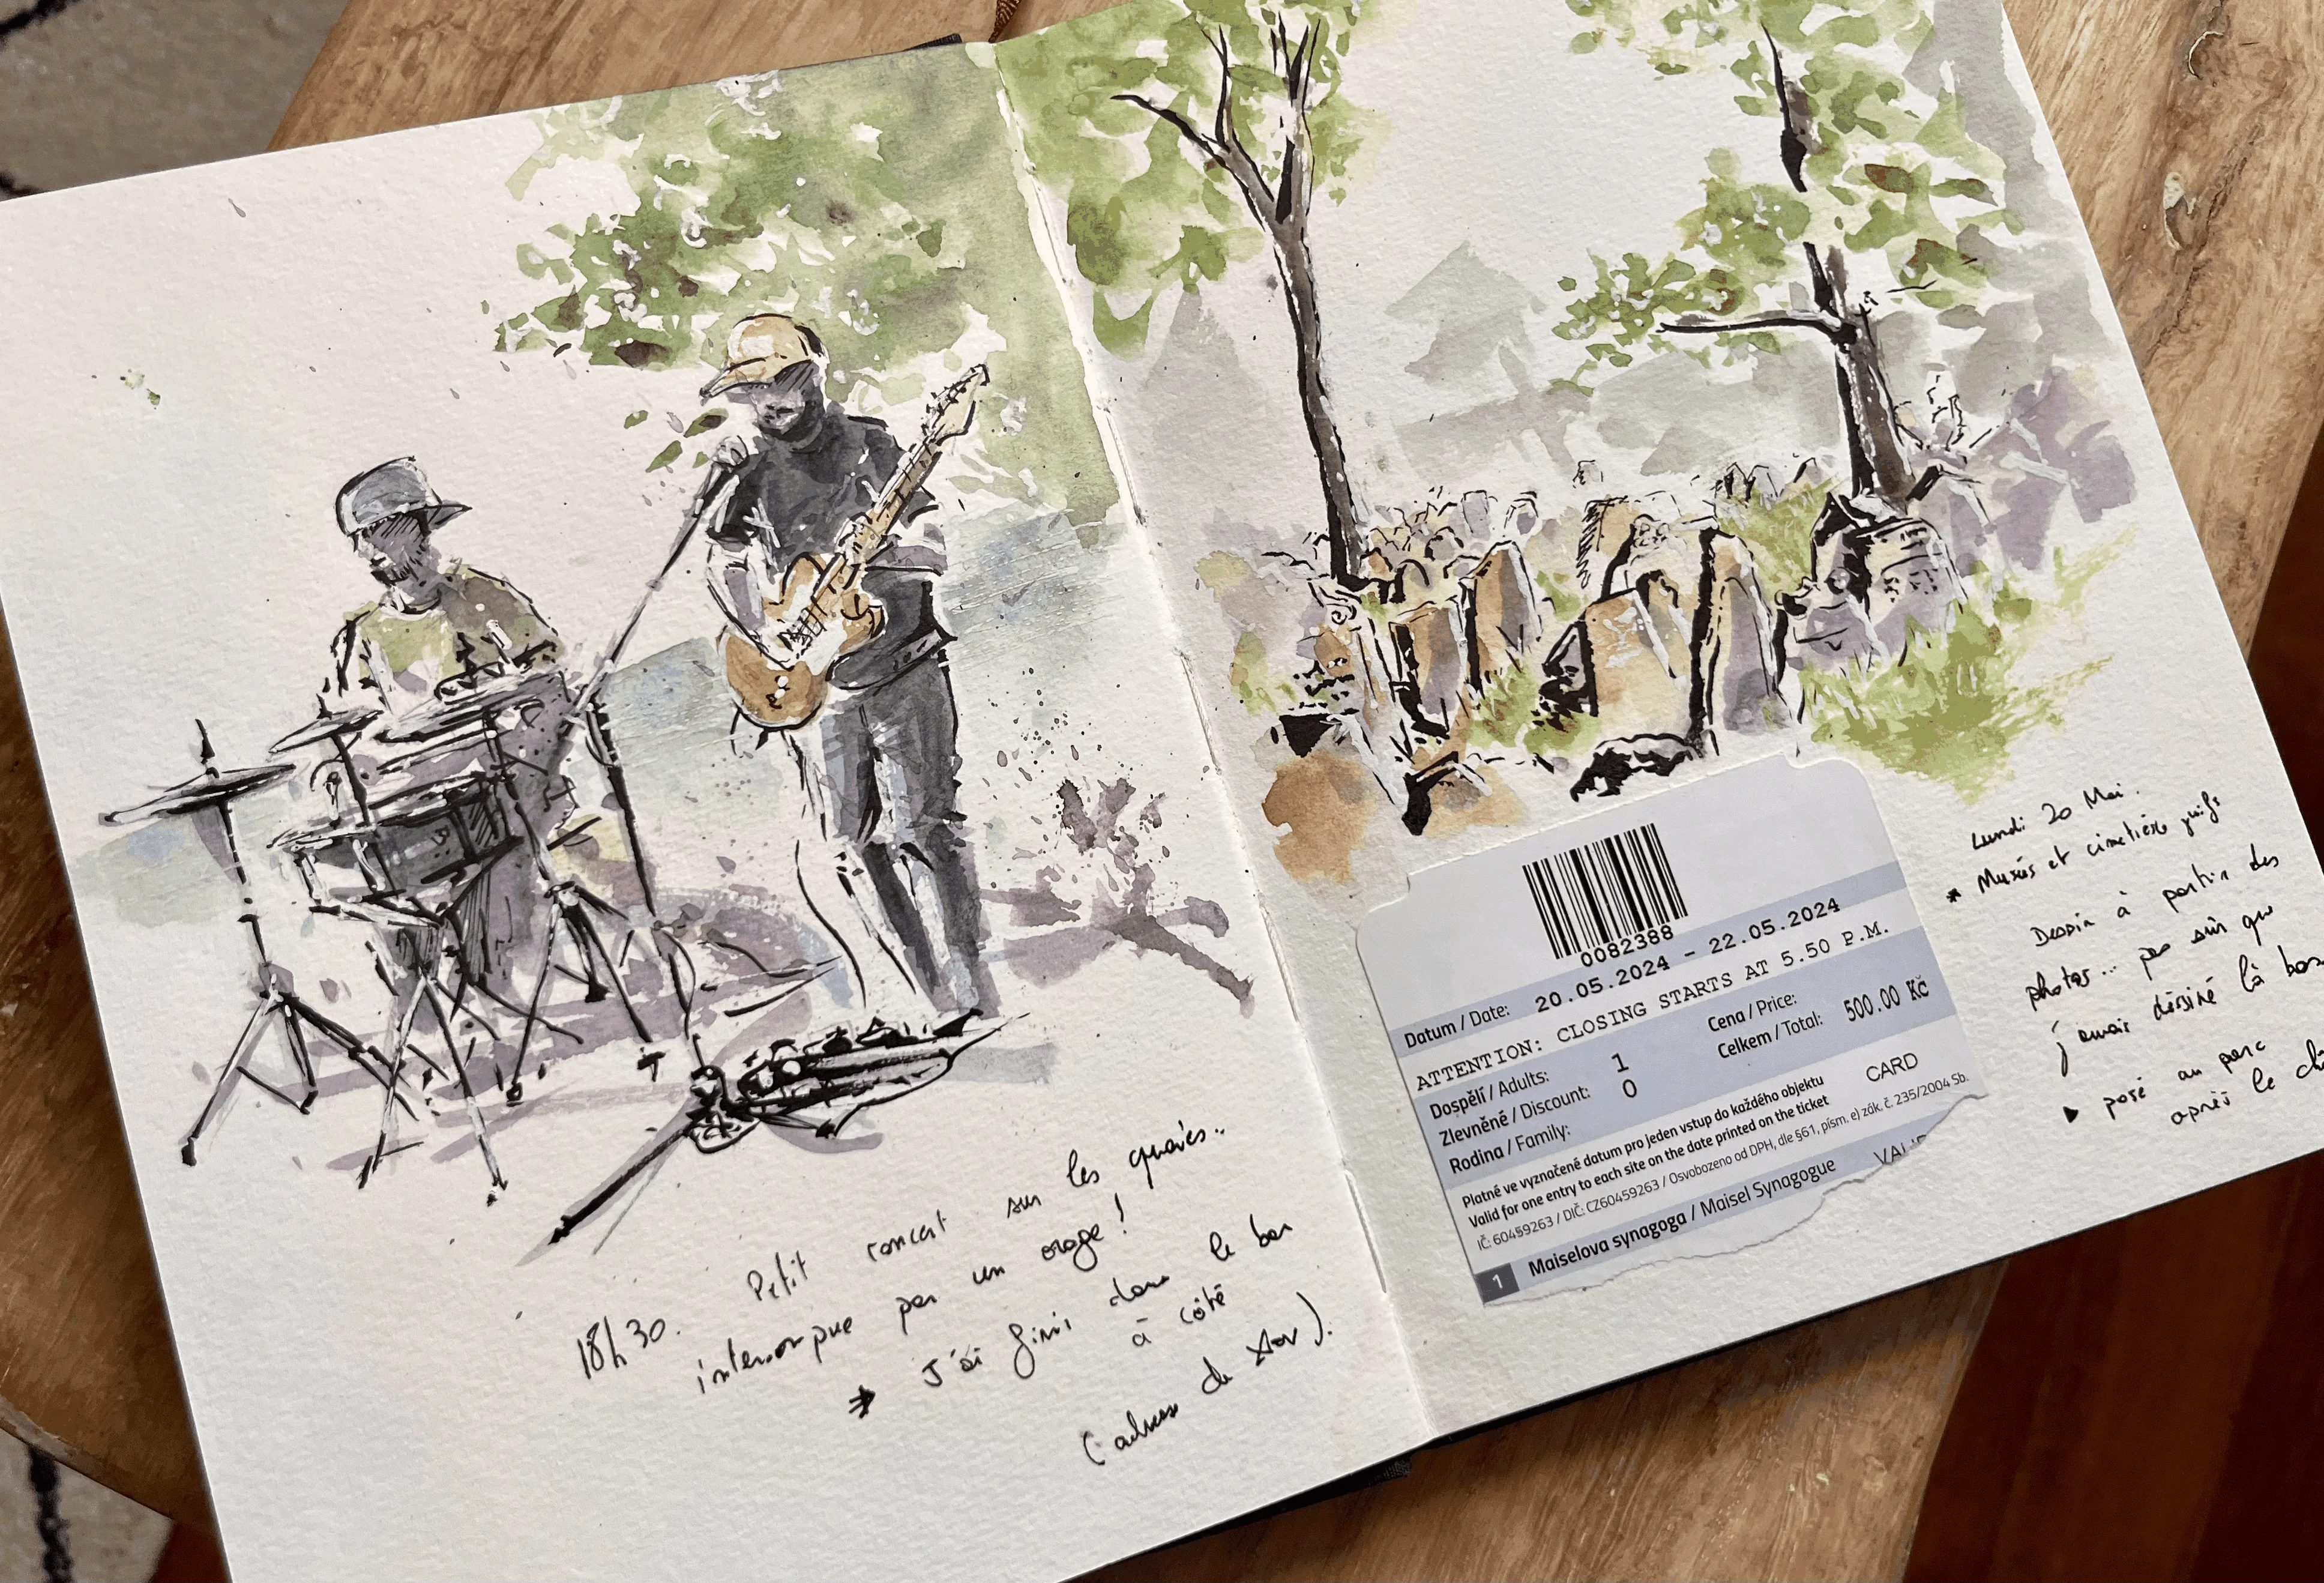 18h30. Petit concert sur les quaies..
interrompue par un orage!
→ J'ai fini dans le bar
à côté
0082388
Datum / Date: 20.05.2024 - 22.05.2024
ATTENTION: CLOSING STARTS AT 5.50 P.M.
Dospělí / Adults: 1 Cena / Price:
Zlevněné / Discount: 0 Celkem / Total: 500.00 Kč
Rodina / Family: CARD
Platné ve vyznačené datum pro jeden vstup do každého objektu
Valid for one entry to each site on the date printed on the ticket
IČ: 60459263 / DIČ: CZ60459263 / Osvobozeno od DPH, dle §61, písm. e) zák. č. 235/2004 Sb.
1 Maiselova synagoga / Maisel Synagogue
Lundi 20 Mai.
* Musés et cimetière juifs
Dessin à partir des
photos... pas sûr que
j'aurais dessiné là bas
▸ posé au parc
après le